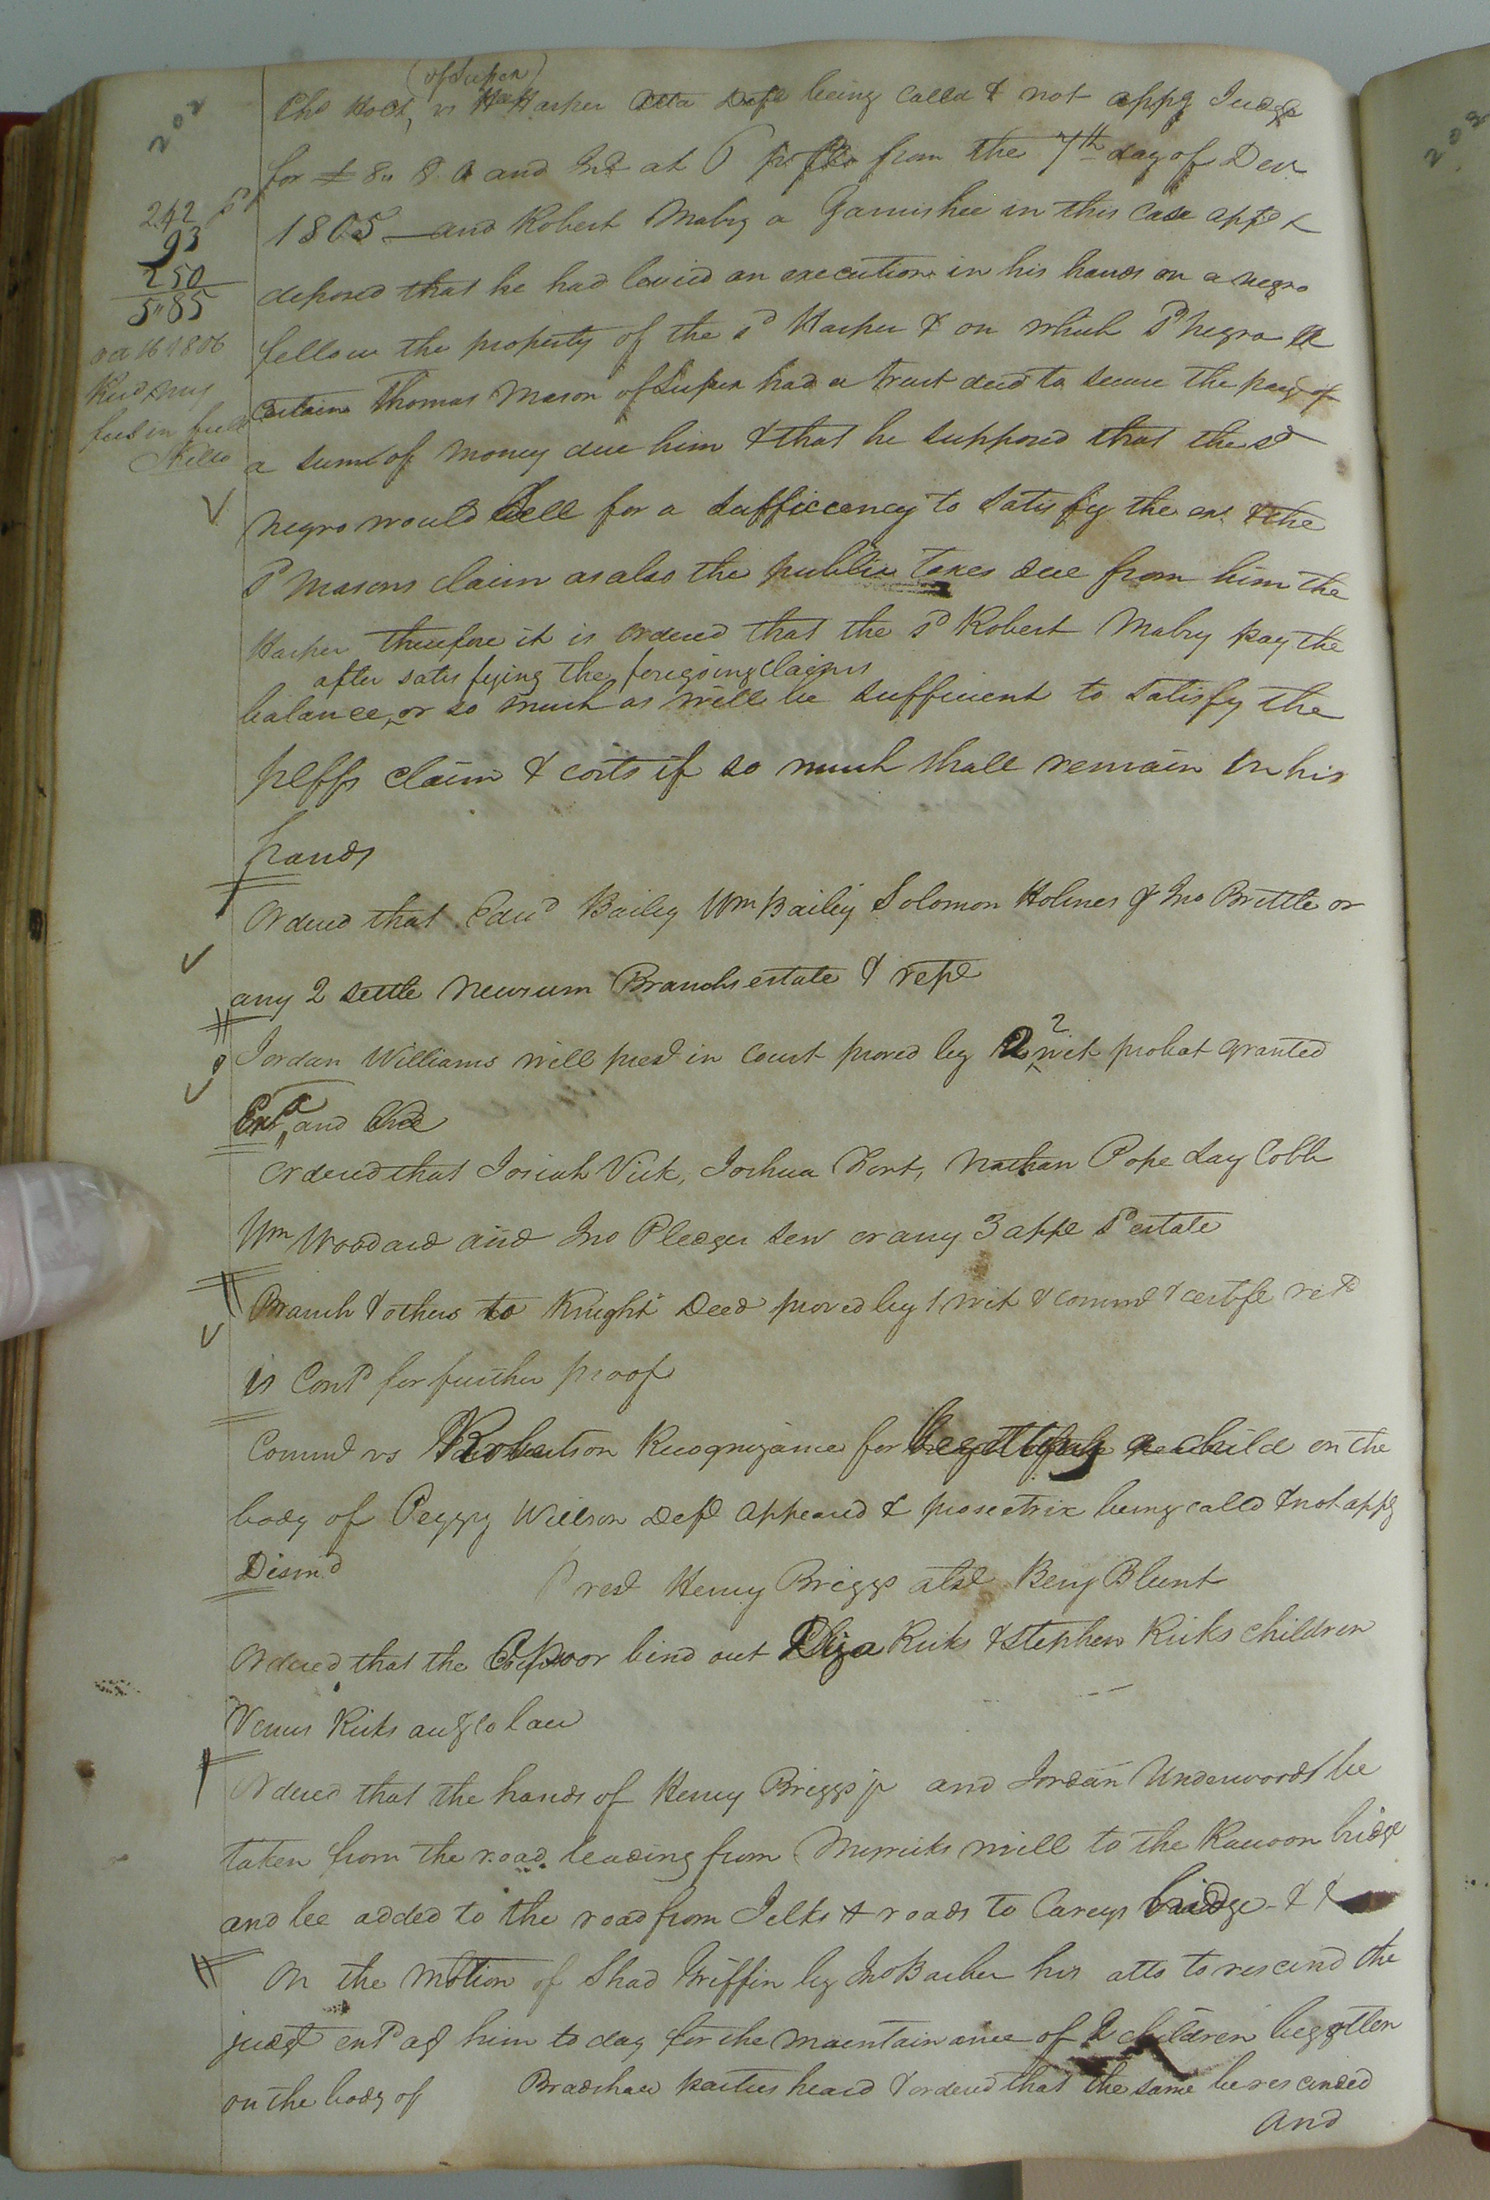 202
(of Supex)
Chs Holt, vs H Harper Atta Deft being Called & not appg Judgt
for £8.. 8. 0 and Int at 6 pr Ct from the 7th day of Decr
1805 — and Robert Mabry a Garnishee in this Case appd &
deposed that he had levied an execution in his hands on a negro
fellow the property of the sd Harper & on which sd negro a
certain Thomas Mason of Supex had a trust deed to secure the pay of
a sum of money due him & that he supposed that the sd
negro would Sell for a sufficcency to satisfy the exn & the
sd Masons claim as also the public taxes due from him the
Harper therefore it is ordered that the sd Robert Mabry pay the
after satisfying the foregoing claims
balance, or so much as will be sufficient to satisfy the
plffs claim & costs if so much shall remain in his
hands
242
93
250
5"85
Oct 16 1806
Recd my
fees in full
Ordered that Edwd Bailey Wm Bailey Solomon Holmes & Jno Brittle or
any 2 settle Newsum Branchs estate & rept
Jordan Williams will prest in Court proved by 2 wit probat granted
Exr and
Ordered that Josiah Vick, Joshua Fort, Nathan Pope Lay Cobb
Wm Woodard and Jno Pledger senr or any 3 appe sd estate
Branch & others to Knight Deed proved by 1 wit & commn & certife retd
is Contd for further proof
Commd vs Robertson Recognizance for begetting a child on the
body of Peggy Willson Deft appeared & prosectrix being calld & not appg
Dismd
Prest Henry Briggs atst Benj Blunt
Ordered that the poor bind out Eliza Ricks & Stephen Ricks children
Venus Ricks acc to law
Ordered that the hands of Henry Briggs jr and Jordan Underwoods be
taken from the road leading from Myrricks mill to the Racoon bridge
and be added to the road from Jelks + roads to Careys bridge - & &
On the Motion of Shad Griffin by Jno Barker his atto to rescind the
judgt entd agt him to day for the maintainance of 2 children begotten
on the body of Bradshaw parties heard & ordered that the same be rescinded
and
203